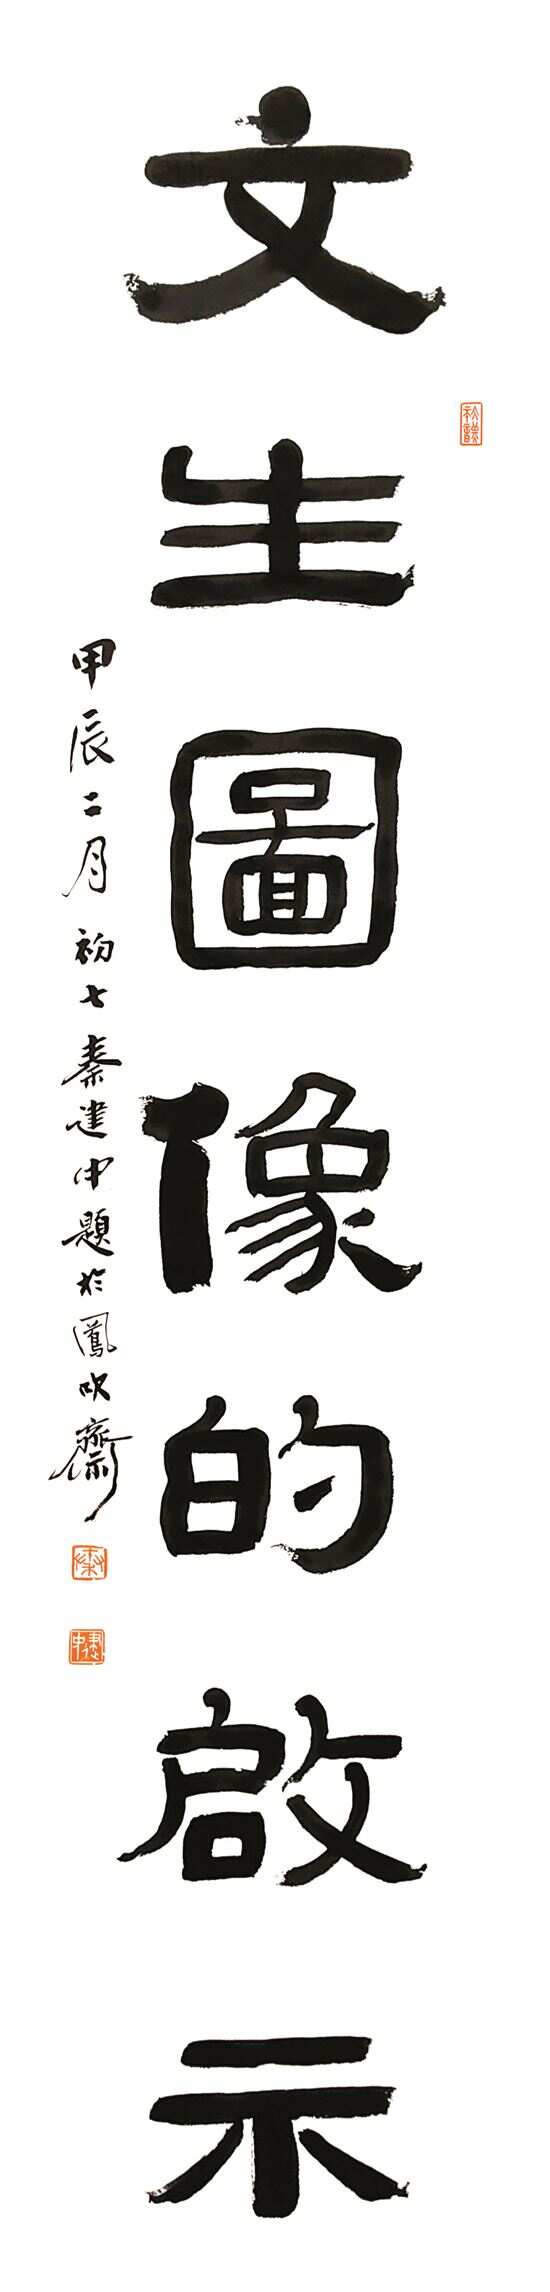 文生圖像的啟示
甲辰二月初七秦建中題於鳳吹齋
秦
建中